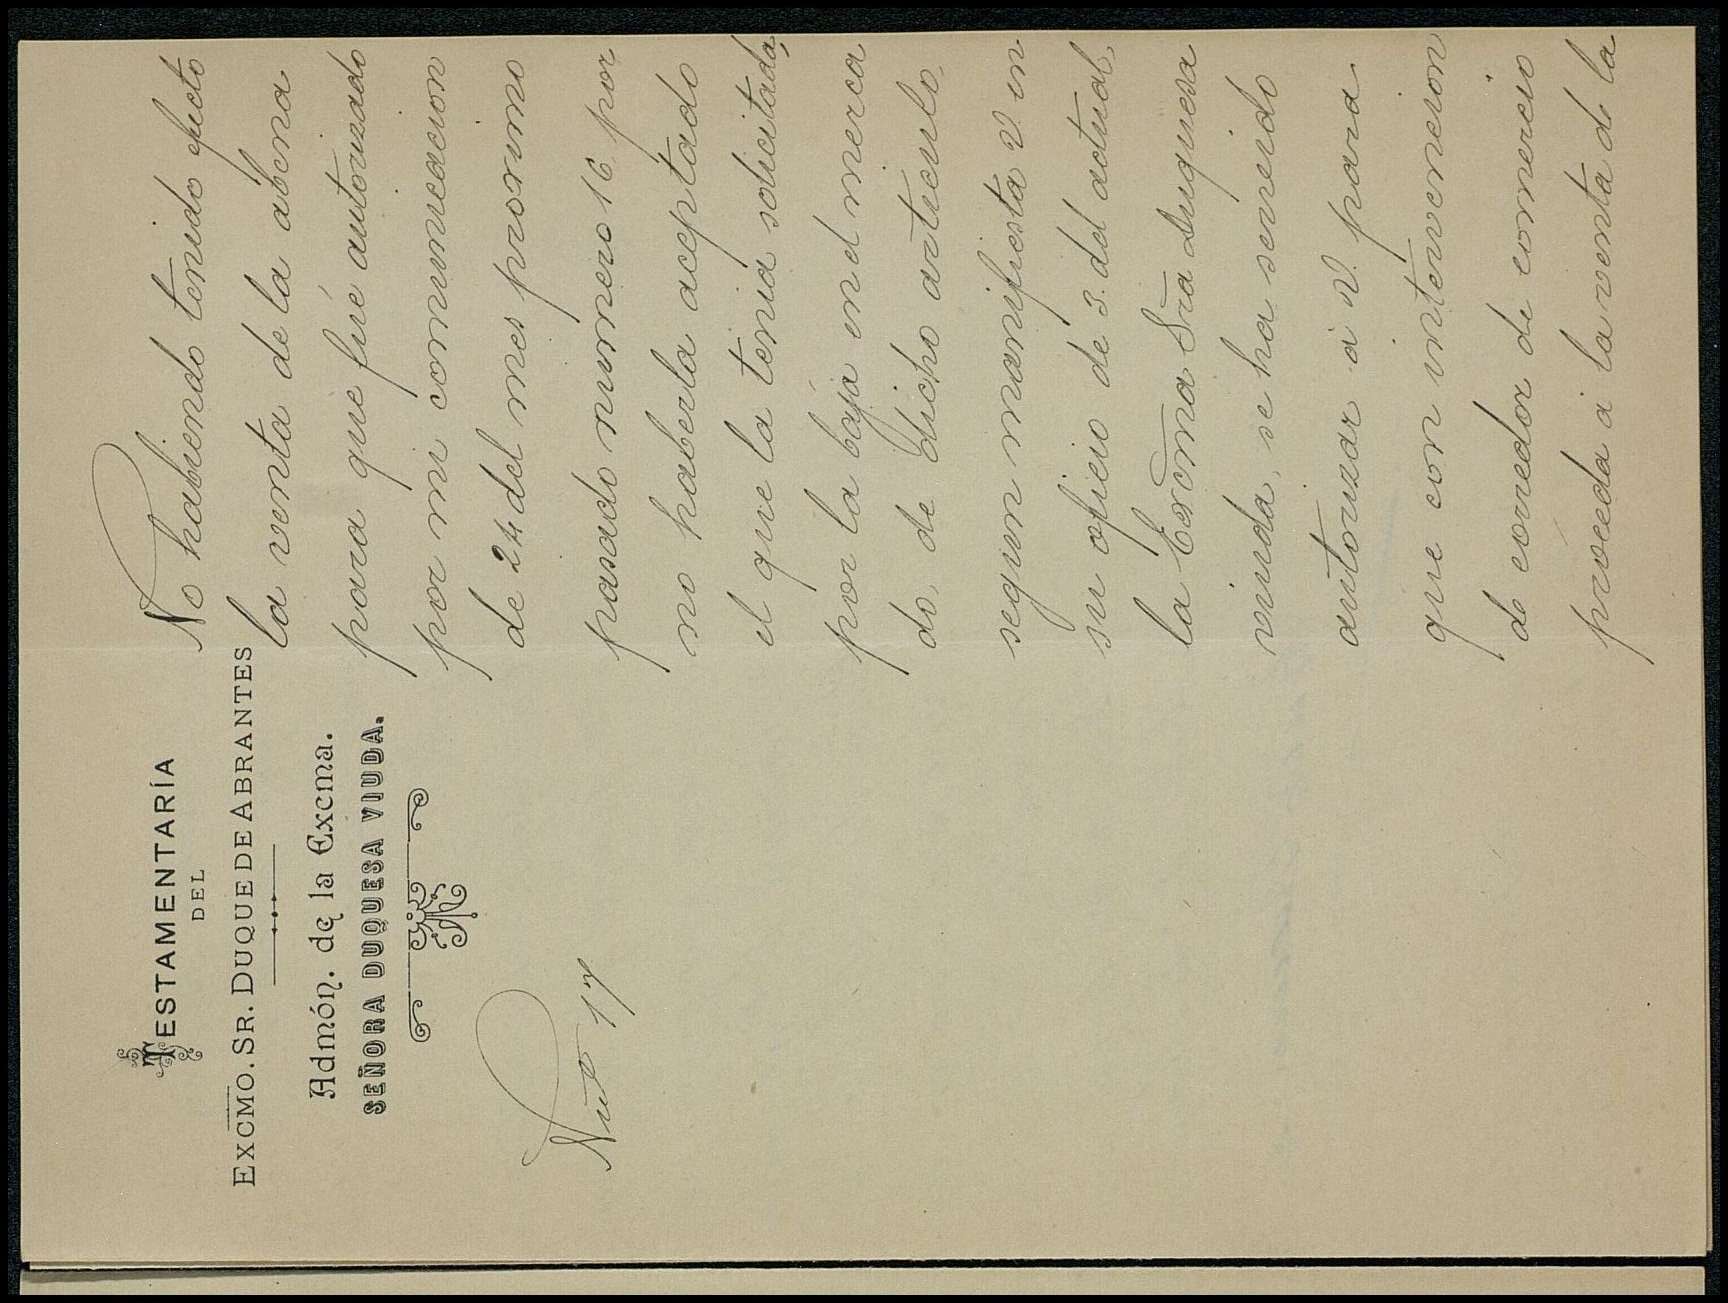 TESTAMENTARÍA
DEL
EXCMO. SR. DUQUE DE ABRANTES
Admón. de la Excma.
SEÑORA DUQUESA VIUDA.
Núo 17
No habiendo tenido efecto
la venta de la abena
para que fué autorizado
por mi comunicacion
de 24 del mes proximo
pasado numero 16 por
no haberla aceptado
el que la tenia solicitada,
por la baja en el merca
do, de dicho articulo,
segun manifiesta V. en
su oficio de 3. del actual,
la Excma Sra Duquesa
viuda, se ha servido
autorizar á V. para
que con intervencion
de corredor de comercio
proceda á la venta de la